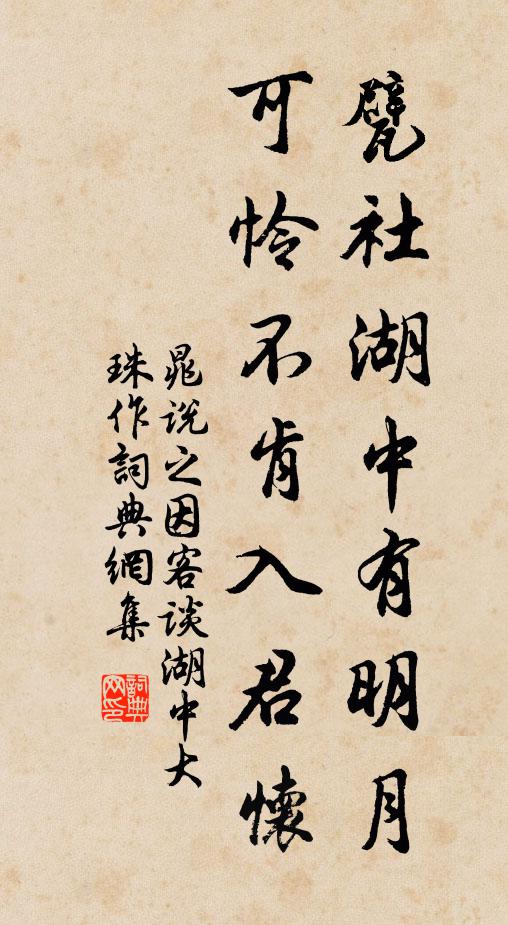 甓社湖中有明月
可怜不肯入君懷
晁说之因客谈湖中大
珠作詞典網集
詞典網印